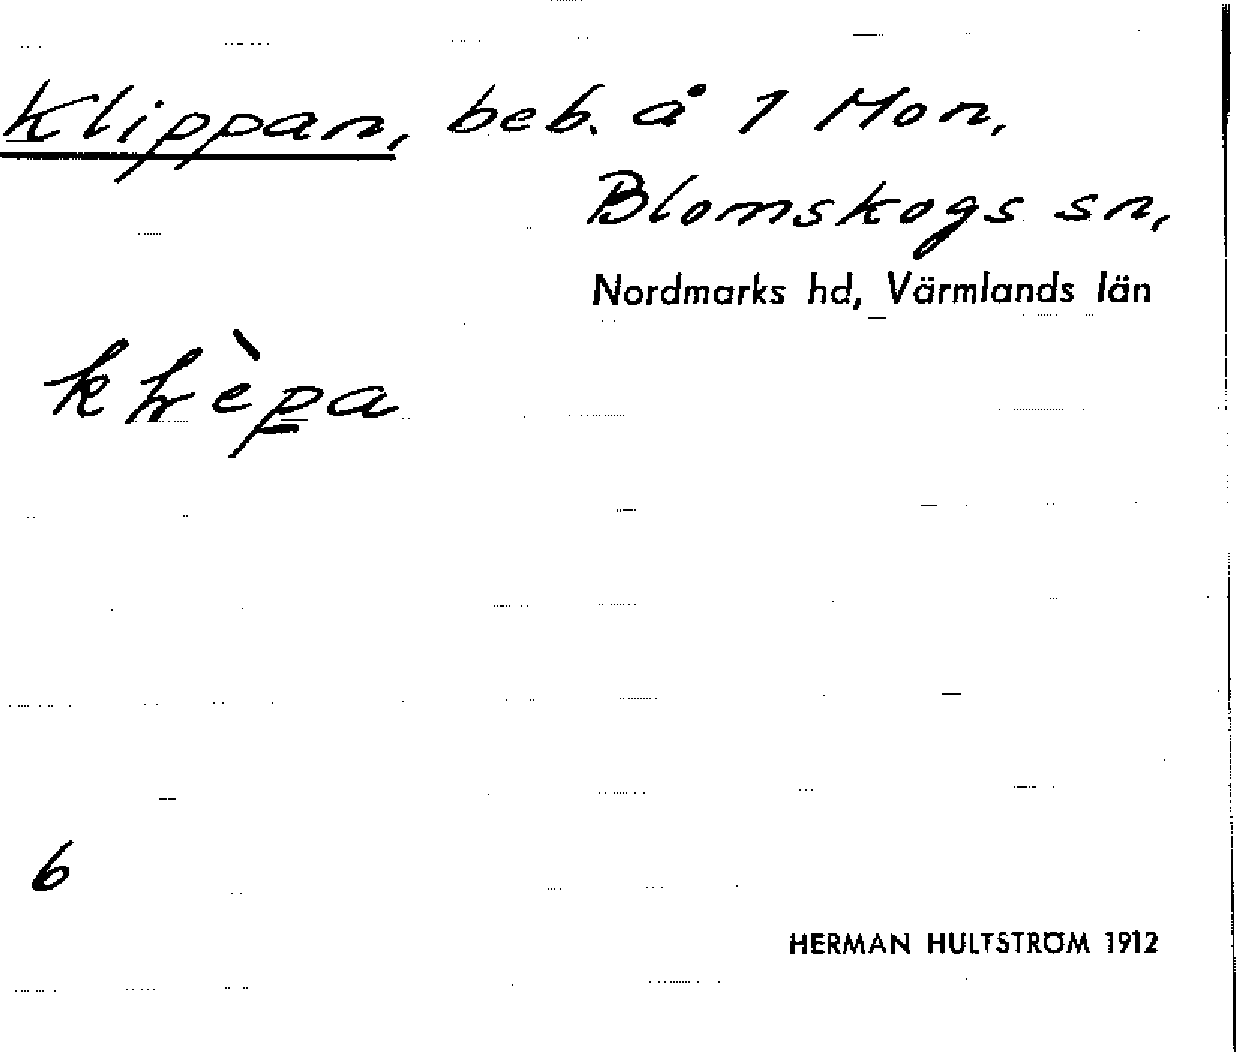 Klippan, beb. å 1 Mon,
Blomskogs sn,
Nordmarks hd, Värmlands län
6
HERMAN HULTSTRÖM 1912